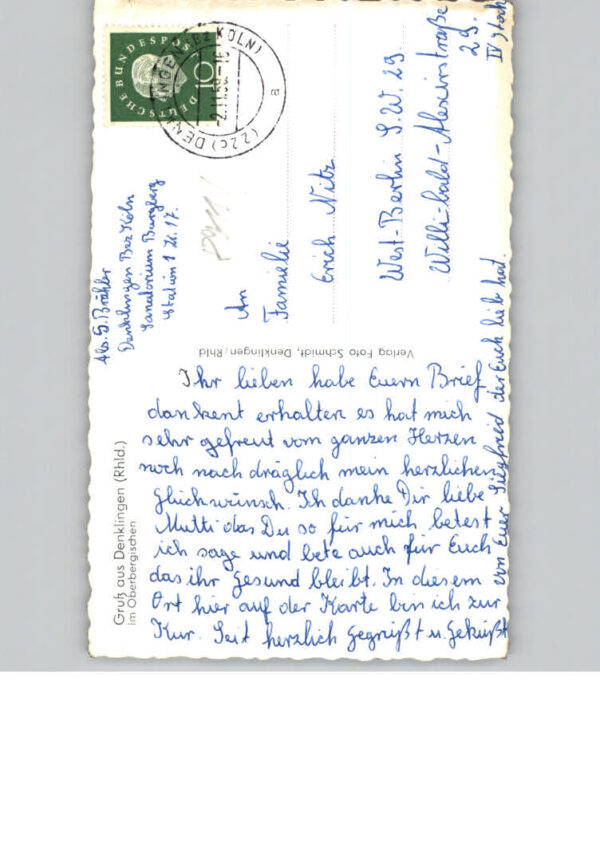 Gruß aus Denklingen (Rhld.)
im Oberbergischen
Ihr lieben habe Euern Brief
dankent erhalten es hat mich
sehr gefreut vom ganzen Herzen
noch nach dräglich mein herzlichen
Glückwünsch. Ich danke Dir liebe
Mutti das Du so für mich betest
ich sage und bete auch für Euch
das ihr Gesund bleibt. In diesem
Ort hier auf der Karte bin ich zur
Kur. Seit herzlich gegrüßt u. geküßt
von Euer Siegfried der Euch lieb hat.
Verlag Foto Schmidt, Denklingen/Rhld.
Abs. S. Brühler
Denklingen Bez Köln
Sanatorium Burgberg
Station 1 Zi. 17.
An
Familie
Erich Nitz
West-Berlin S.W. 29
Willi-bald-Alexisstraße
29.
IV Stock
DEUTSCHE BUNDESPOST
10
(22c) DENKLINGEN (BZ KÖLN)
-2.11.59
a